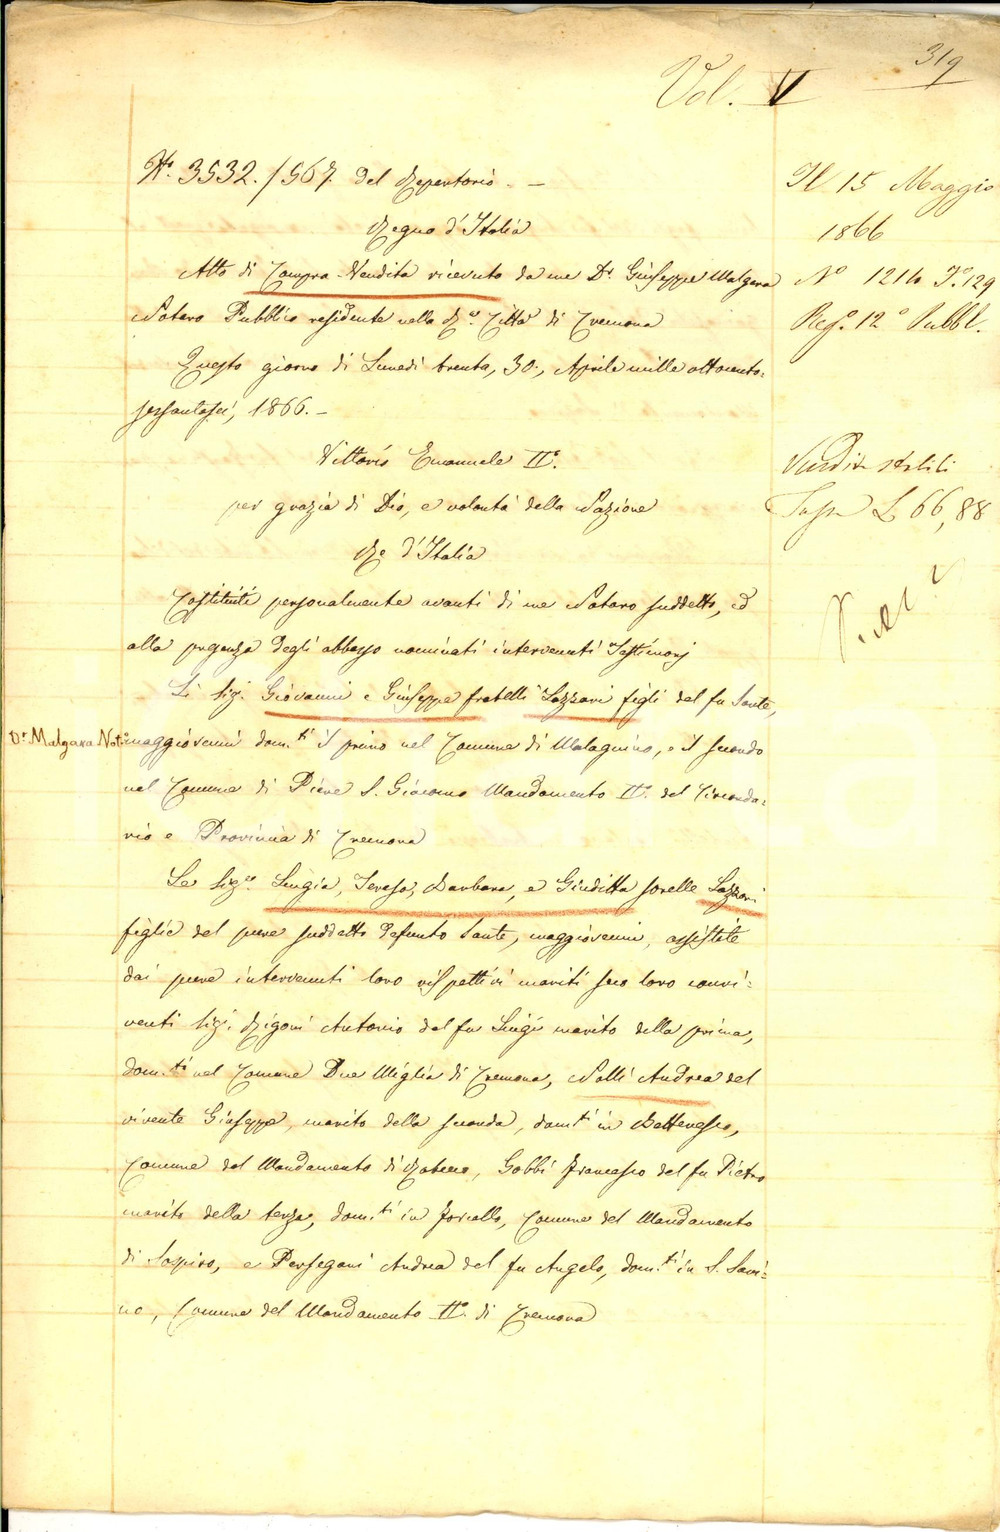 319
Vol. V
N.° 3532./567. del Repertorio. —
Regno d'Italia
Atto di Compra-Vendita ricevuto da me D.r Giuseppe Malgara
Notaro Pubblico residente nella R.a Città di Cremona
Questo giorno di Lunedì trenta, 30., Aprile mille ottocento-
sessantasei, 1866. —
Vittorio Emanuele II°.
per grazia di Dio, e volontà della Nazione
Re d'Italia
Costituiti personalmente avanti di me Notaro suddetto, ed
alla presenza degli abbasso nominati intervenuti Testimonj
Li Sig.i Giovanni e Giuseppe fratelli Lazzari figli del fu Sante,
maggiorenni dom.ti il primo nel Comune di Malagnino, e il secondo
nel Comune di Pieve S. Giacomo Mandamento II°. del Circonda-
rio e Provincia di Cremona
Le Sig.re Luigia, Teresa, Barbara, e Giuditta sorelle Lazzari
figlie del pure suddetto defunto Sante, maggiorenni, assistite
dai pure intervenuti loro rispettivi mariti seco loro convi-
venti Sig.i Rigoni Antonio del fu Luigi marito della prima,
dom.ti nel Comune Due Miglia di Cremona, Nolli Andrea del
vivente Giuseppe, marito della seconda, dom.ti in Bettenesco,
Comune del Mandamento di Robecco, Gobbi Francesco del fu Pietro
marito della terza, dom.ti in Forcello, Comune del Mandamento
di Sospiro, e Persegani Andrea del fu Angelo, dom.ti in S. Savi-
no, Comune del Mandamento II°. di Cremona
D.r Malgara Not.o
Il 15 Maggio
1866
N° 1214 F.° 129
Reg.° 12° Pubbl.
Vendita stabili
Tassa L 66,88